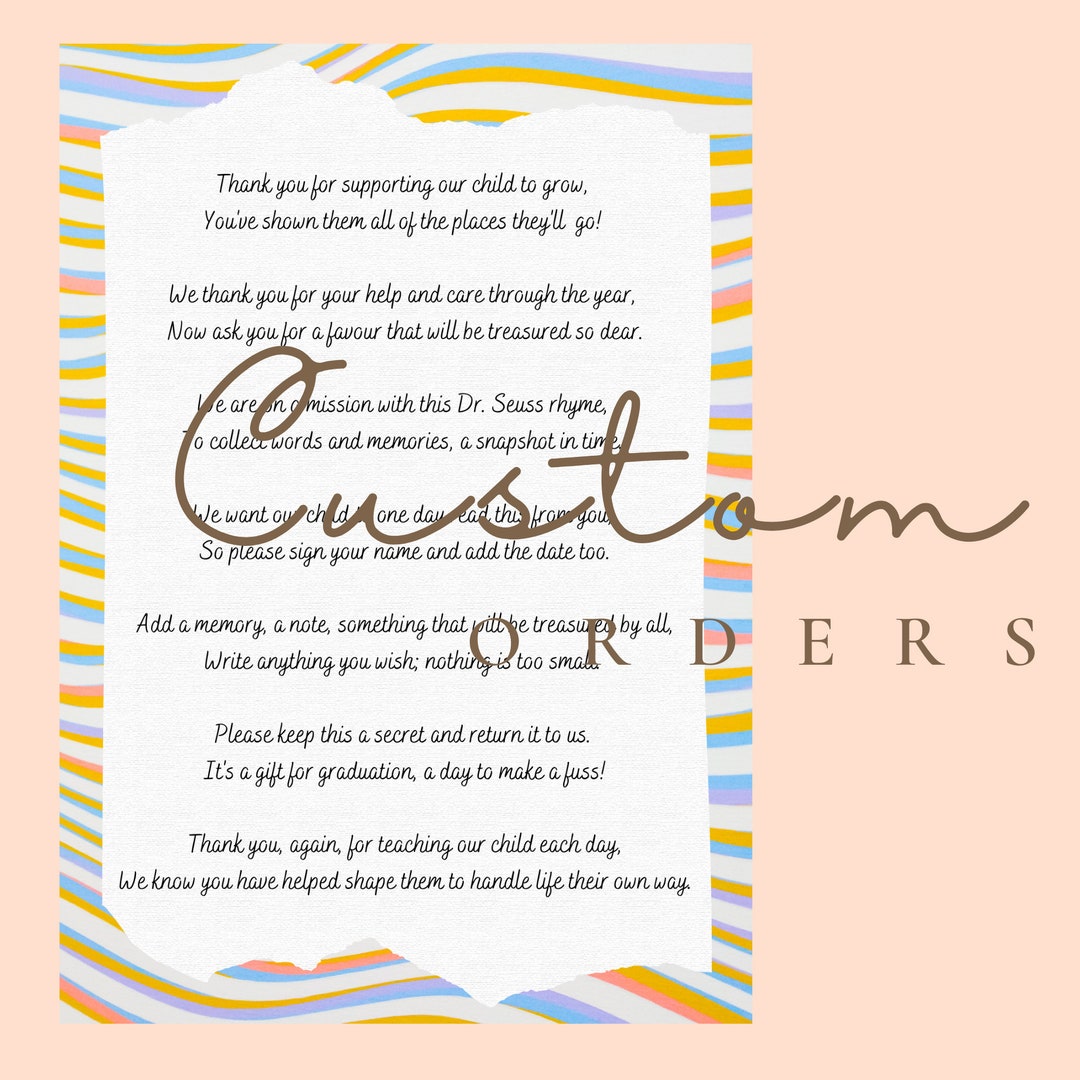 Thank you for supporting our child to grow,
You've shown them all of the places they'll go!
We thank you for your help and care through the year,
Now ask you for a favour that will be treasured so dear.
We are on a mission with this Dr. Seuss rhyme,
To collect words and memories, a snapshot in time.
We want our child to one day read this from you,
So please sign your name and add the date too.
Add a memory, a note, something that will be treasured by all,
Write anything you wish; nothing is too small.
Please keep this a secret and return it to us.
It's a gift for graduation, a day to make a fuss!
Thank you, again, for teaching our child each day,
We know you have helped shape them to handle life their own way.
Custom
ORDERS